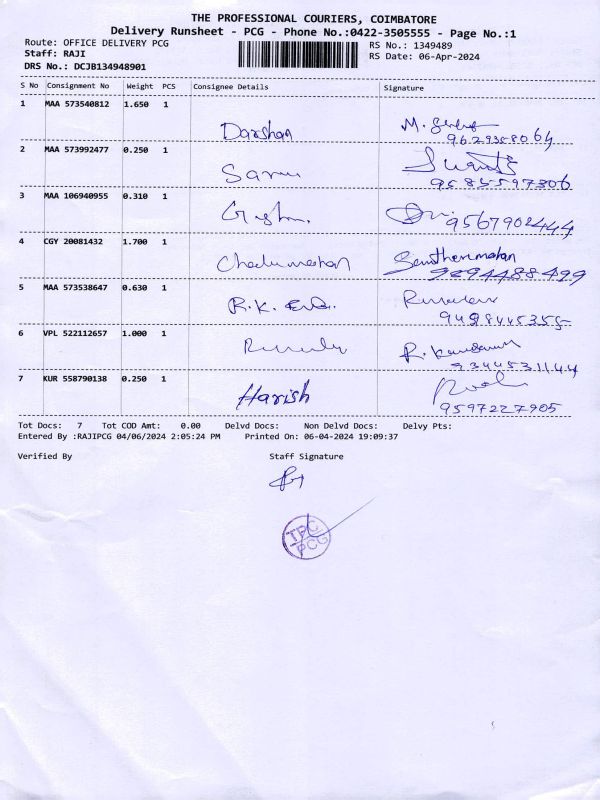 THE PROFESSIONAL COURIERS, COIMBATORE
Delivery Runsheet - PCG - Phone No.:0422-3505555 - Page No.:1
Route: OFFICE DELIVERY PCG RS No.: 1349489
Staff: RAJI RS Date: 06-Apr-2024
DRS No.: DCJB134948901
S No Consignment No Weight PCS Consignee Details Signature
1 MAA 573540812 1.650 1
Darshan M.
9629358064
2 MAA 573992477 0.250 1
3 MAA 106940955 0.310 1
9567902444
4 CGY 20081432 1.700 1
9294488499
5 MAA 573538647 0.630 1
R.K.
6 VPL 522112657 1.000 1
R.
7 KUR 558790138 0.250 1
Harish
9597227905
Tot Docs: 7 Tot COD Amt: 0.00 Delvd Docs: Non Delvd Docs: Delvy Pts:
Entered By :RAJIPCG 04/06/2024 2:05:24 PM Printed On: 06-04-2024 19:09:37
Verified By Staff Signature
TPC
PCG